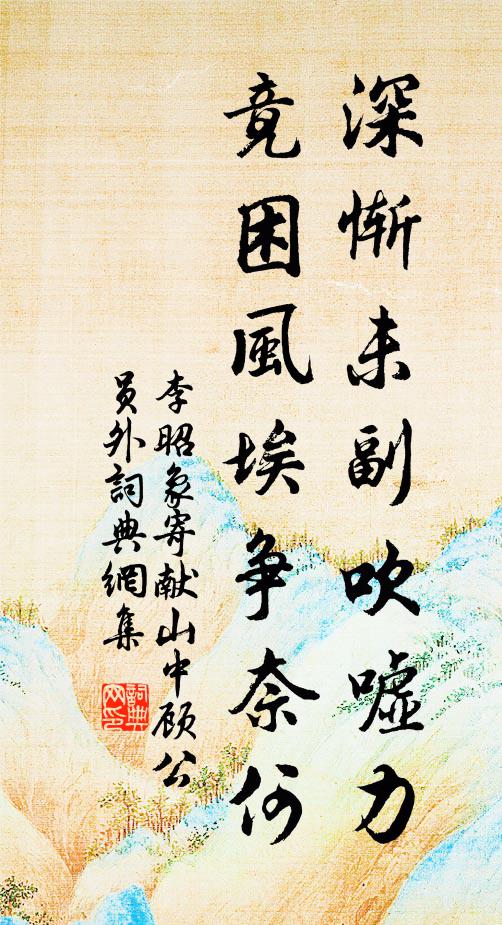 深慚未副吹噓力
竟困風埃争奈何
李昭象寄献山中顾公
员外詞典網集
詞典
网印